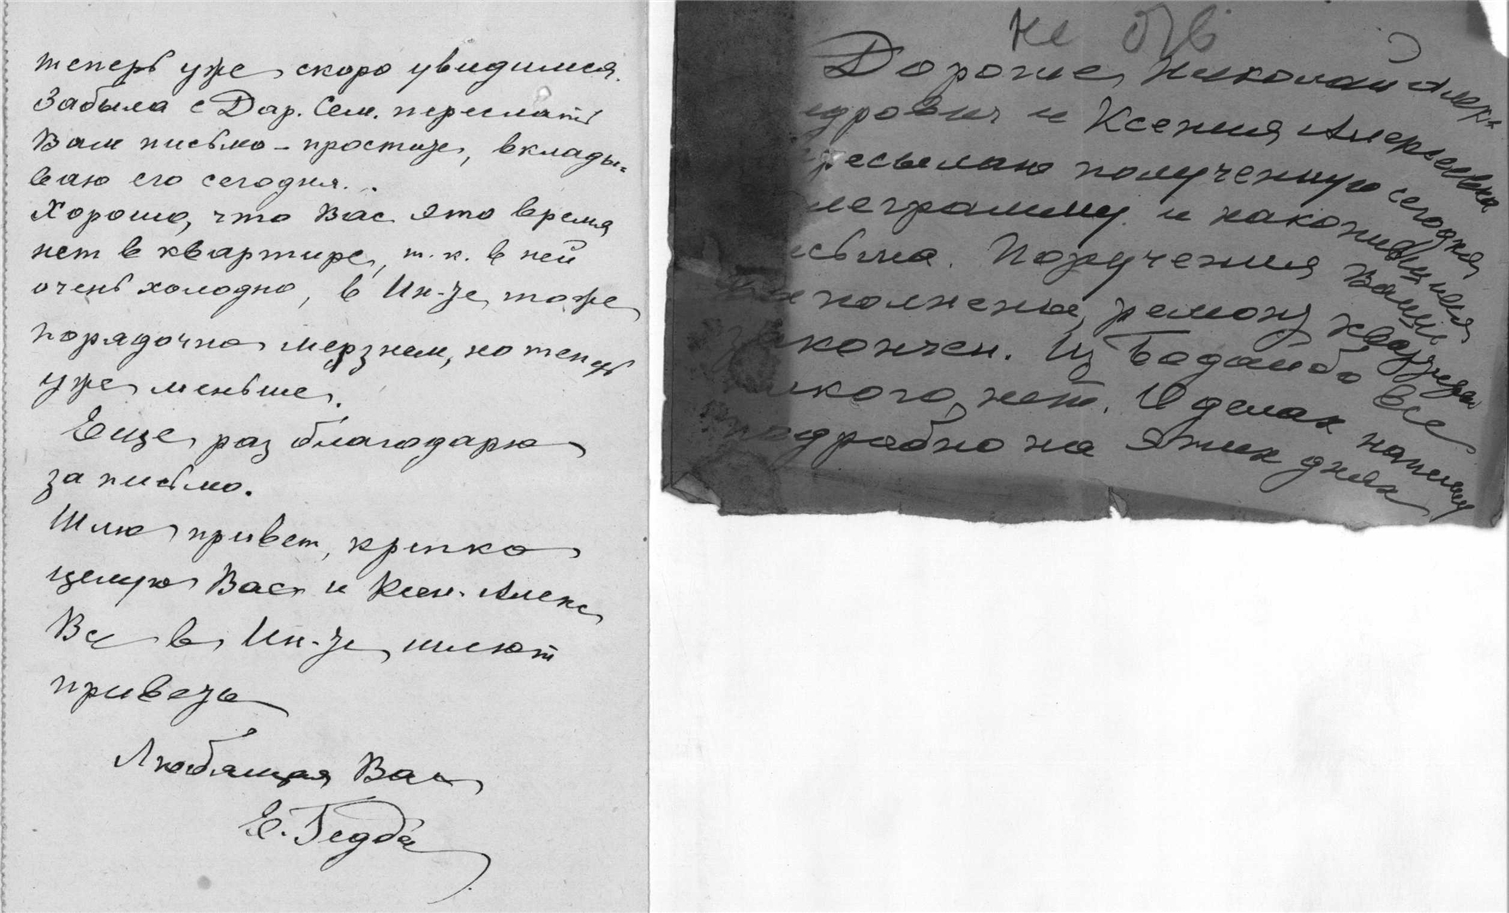 теперь уже скоро увидимся.
Забыла с Дар. Сем. переслать
Вам письмо – простите, вклады-
ваю его сегодня.
Хорошо, что Вас это время
нет в квартире, т.к. в ней
очень холодно, в Ин-те тоже
порядочно мерзнем, но теперь
уже меньше.
Еще раз благодарю
за письмо.
Шлю привет, крепко
целую Вас и Ксен. Алекс
Все в Ин-те шлют
приветы
Любящая Вас
Е.
не
Дорогие Николай Алек-
ндрович и Ксения Алексеевна
ресылаю полученную сегодня
леграмму и накопившиеся
исьма. Поручения Ваши
полнены, ремонт квартиры
закончен. Из Бодайбо все
никого нет. О делах напишу
подробно на этих днях